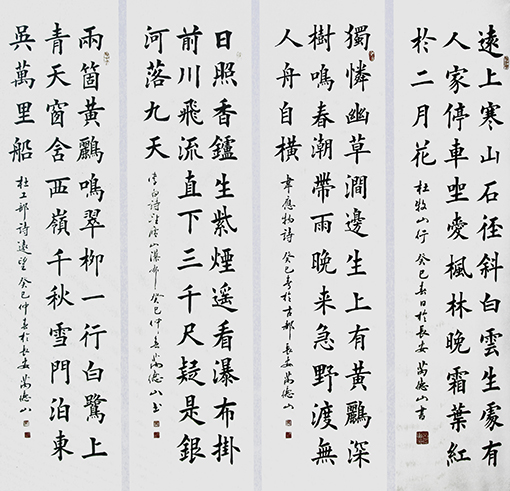 遠上寒山石徑斜白雲生處有
人家停車坐愛楓林晚霜葉紅
於二月花
杜牧山行 癸巳春日於長安 萬德山書
獨憐幽草澗邊生上有黃鸝深
樹鳴春潮帶雨晚來急野渡無
人舟自橫
韋應物詩 癸巳春於古都長安 萬德山
日照香鑪生紫煙遥看瀑布掛
前川飛流直下三千尺疑是銀
河落九天
李白詩望廬山瀑布 癸巳仲春 萬德山书
兩箇黃鸝鳴翠柳一行白鷺上
青天窗含西嶺千秋雪門泊東
吳萬里船
杜工部詩 癸巳仲春於長安 萬德山